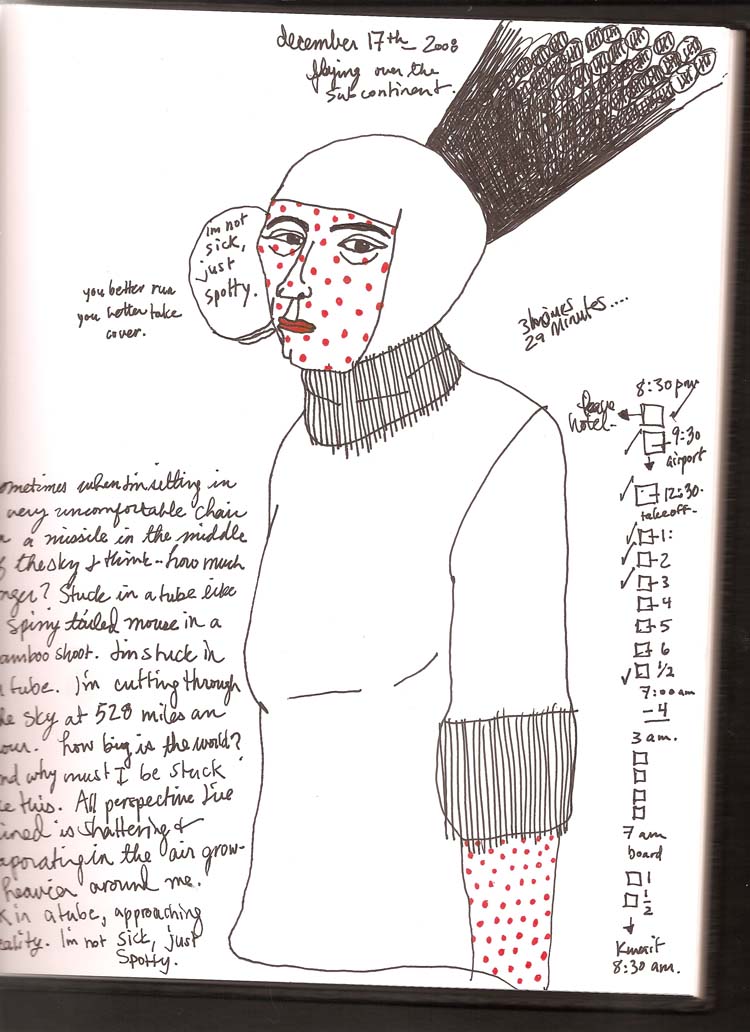 december 17th 2008
flying over the
sub continent.
im not
sick,
just
spotty.
you better run
you better take
cover.
29 minutes....
8:30 pm
leave
hotel-
9:30
airport
12:30-
takeoff-
1:
2
3
4
5
6
1/2
7:00am
-4
3 am.
7 am
board
1
1/2
Kuwait
8:30 am.
ometimes when I'm sitting in
very uncomfortable chair
a missile in the middle
the sky I think-- how much
nger? Stuck in a tube like
spiny tailed mouse in a
amboo shoot. I'm stuck in
tube. I'm cutting through
he sky at 528 miles an
our. how big is the world?
nd why must I be stuck
ke this. All perspective I've
ined is shattering &
aporating in the air grow-
heavier around me.
k in a tube, approaching
eality. I'm not sick, just
Spotty.